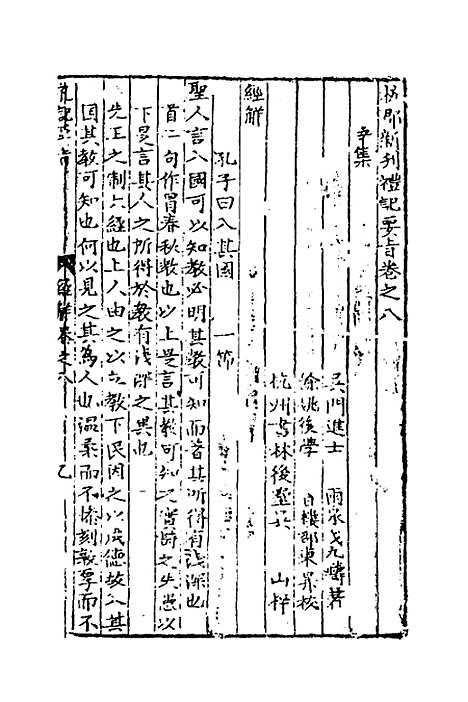 杭郡新刊禮記要旨卷之八
辛集
吳門進士 雨泉戈九疇著
餘姚後學 白樓邵東昇校
杭州書林後 吳 山梓
經解
孔子曰入其國 一節
聖人言入國可以知教必明其教可知而著其所得有淺深也
首二句作冒春秋教也以上是言其教可知之當時之失患以
下是言其人之所得於教有淺深之異也
先王之制六經也上人由之以立教下民因之以成德故入其
國其教可知也何以見之其為人也溫柔而不慘刻敦厚而不
禮記要旨 經解卷之八 乙